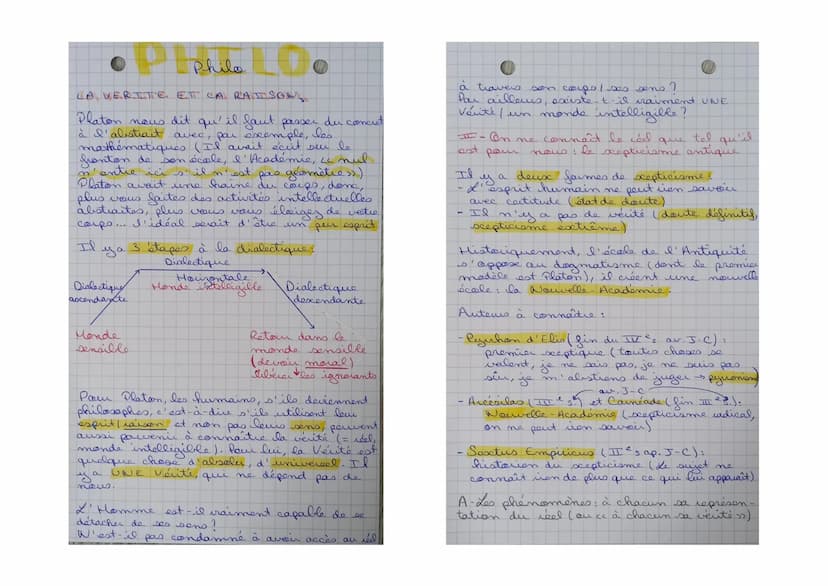 PHILO
Philo
LA VERITE ET LA RAISON
Platon nous dit qu'il faut passer du concret
à l'abstrait avec, par exemple, les
mathématiques (Il avait écrit sur le
fronton de son école, l'Académie, « nul
n'entre ici s'il n'est pas géomètre »)
Platon avait une haine du corps, donc,
plus vous faites des activités intellectuelles
abstraites, plus vous vous éloignez de votre
corps... l'idéal serait d'être un pur esprit
Il y a 3 étapes à la dialectique:
Dialectique
Horizontale
Dialectique
ascendante
Monde intelligible
Dialectique
descendante
Monde
sensible
Retour dans le
monde sensible
(devoir moral)
libérer les ignorants
Pour Platon, les humains, s'ils deviennent
philosophes, c'est-à-dire s'ils utilisent leur
esprit/raison et non pas leurs sens, peuvent
aussi parvenir à connaître la vérité (= réel,
monde intelligible). Pour lui, la Vérité est
quelque chose d'absolu, d'universel. Il
y a UNE Vérité, qui ne dépend pas de
nous.
L'Homme est-il vraiment capable de se
détacher de ses sens ?
N'est-il pas condamné à avoir accès au réel
à travers son corps / ses sens ?
Par ailleurs, existe-t-il vraiment UNE
Vérité / un monde intelligible ?
II - On ne connaît le réel que tel qu'il
est pour nous : le scepticisme antique
Il y a deux formes de scepticisme :
- L'esprit humain ne peut rien savoir
avec certitude (état de doute)
- Il n'y a pas de vérité (doute définitif,
scepticisme extrême)
Historiquement, l'école de l'Antiquité
s'oppose au dogmatisme (dont le premier
modèle est Platon), il créent une nouvelle
école : la Nouvelle-Académie.
Auteurs à connaître :
- Pyrrhon d'Elis (fin du IVe s. av. J-C) :
premier sceptique (toutes choses se
valent, je ne sais pas, je ne suis pas
sûr, je m'abstiens de juger → pyrronisme)
av. J-C
- Arcésilas (IIIe s.) et Carnéade (fin IIIe s.) :
Nouvelle-Académie (scepticisme radical,
on ne peut rien savoir)
- Sextus Empiricus (IIe s ap. J-C) :
historien du scepticisme (Le sujet ne
connaît rien de plus que ce qui lui apparaît)
A - Les phénomènes : à chacun sa représen-
tation du réel (ou « à chacun sa vérité »)